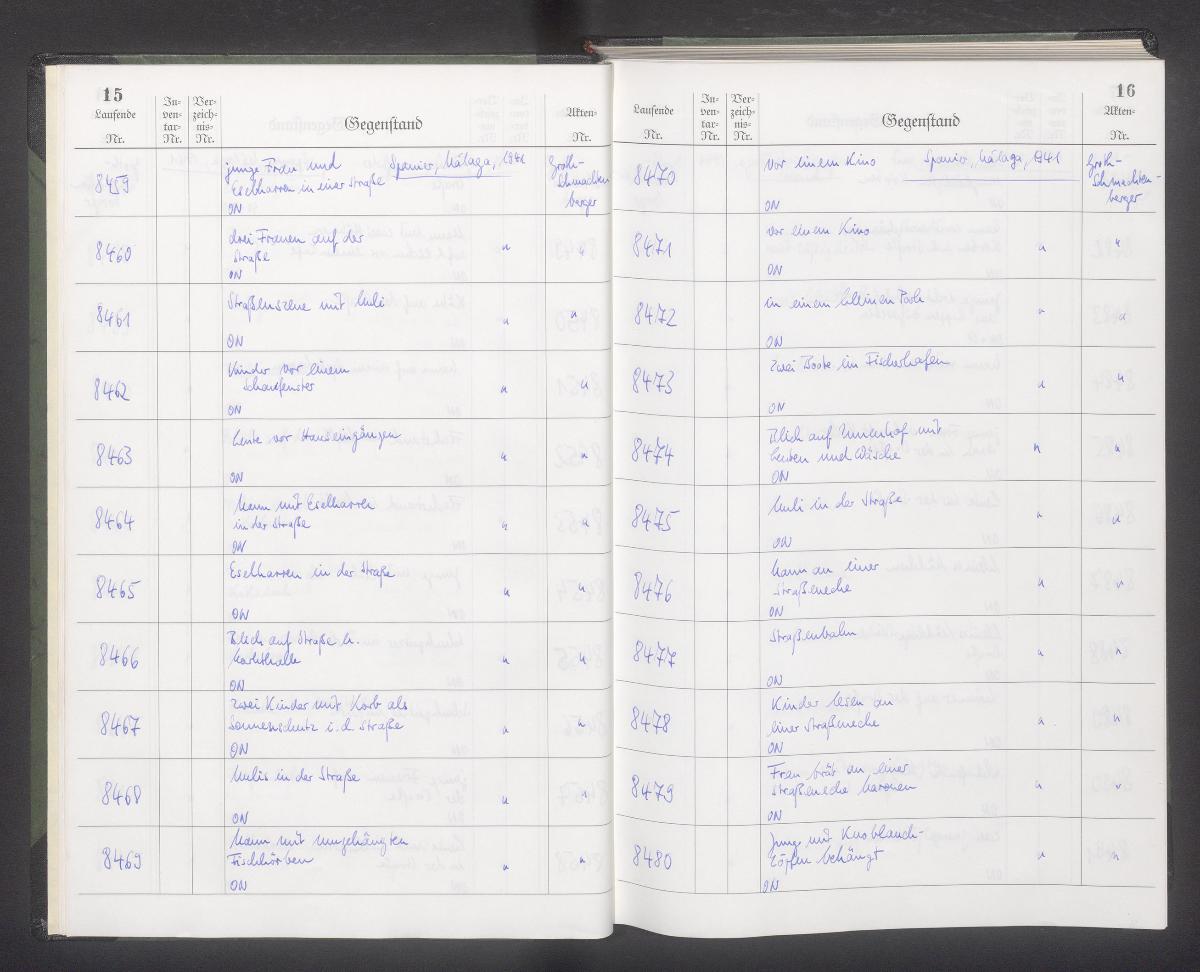 15
Laufende
Nr.
In-
ven-
tar-
Nr.
Ver-
zeich-
nis-
Nr.
Gegenstand
Akten-
Nr.
8459
junge Frau und
Eselkarren in einer Straße
ON
Spanien, Málaga, 1941
Groth-
Schmachten
berger
8460
drei Frauen auf der
Straße
ON
"
"
8461
Straßenszene mit Muli
ON
"
"
8462
Kinder vor einem
Schaufenster
ON
"
"
8463
Leute vor Hauseingängen
ON
"
"
8464
Mann mit Eselkarren
in der Straße
ON
"
"
8465
Eselkarren in der Straße
ON
"
"
8466
Blick auf Straße u.
Markthalle
ON
"
"
8467
zwei Kinder mit Korb als
Sonnenschutz i. d. Straße
ON
"
"
8468
Mulis in der Straße
ON
"
"
8469
Mann mit umgehängten
Fischkörben
ON
"
"
16
Laufende
Nr.
In-
ven-
tar-
Nr.
Ver-
zeich-
nis-
Nr.
Gegenstand
Akten-
Nr.
8470
vor einem Kino
ON
Spanien, Málaga, 1941
Groth-
Schmachten-
berger
8471
vor einem Kino
ON
"
"
8472
in einem kleinen Park
ON
"
"
8473
zwei Boote im Fischerhafen
ON
"
"
8474
Blick auf Innenhof mit
Leuten und Wäsche
ON
"
"
8475
Muli in der Straße
ON
"
"
8476
Mann an einer
Straßenecke
ON
"
"
8477
Straßenbahn
ON
"
"
8478
Kinder lesen an
einer Straßenecke
ON
"
"
8479
Frau brät an einer
Straßenecke Maronen
ON
"
"
8480
Junge mit Knoblauch-
zöpfen behängt
ON
"
"